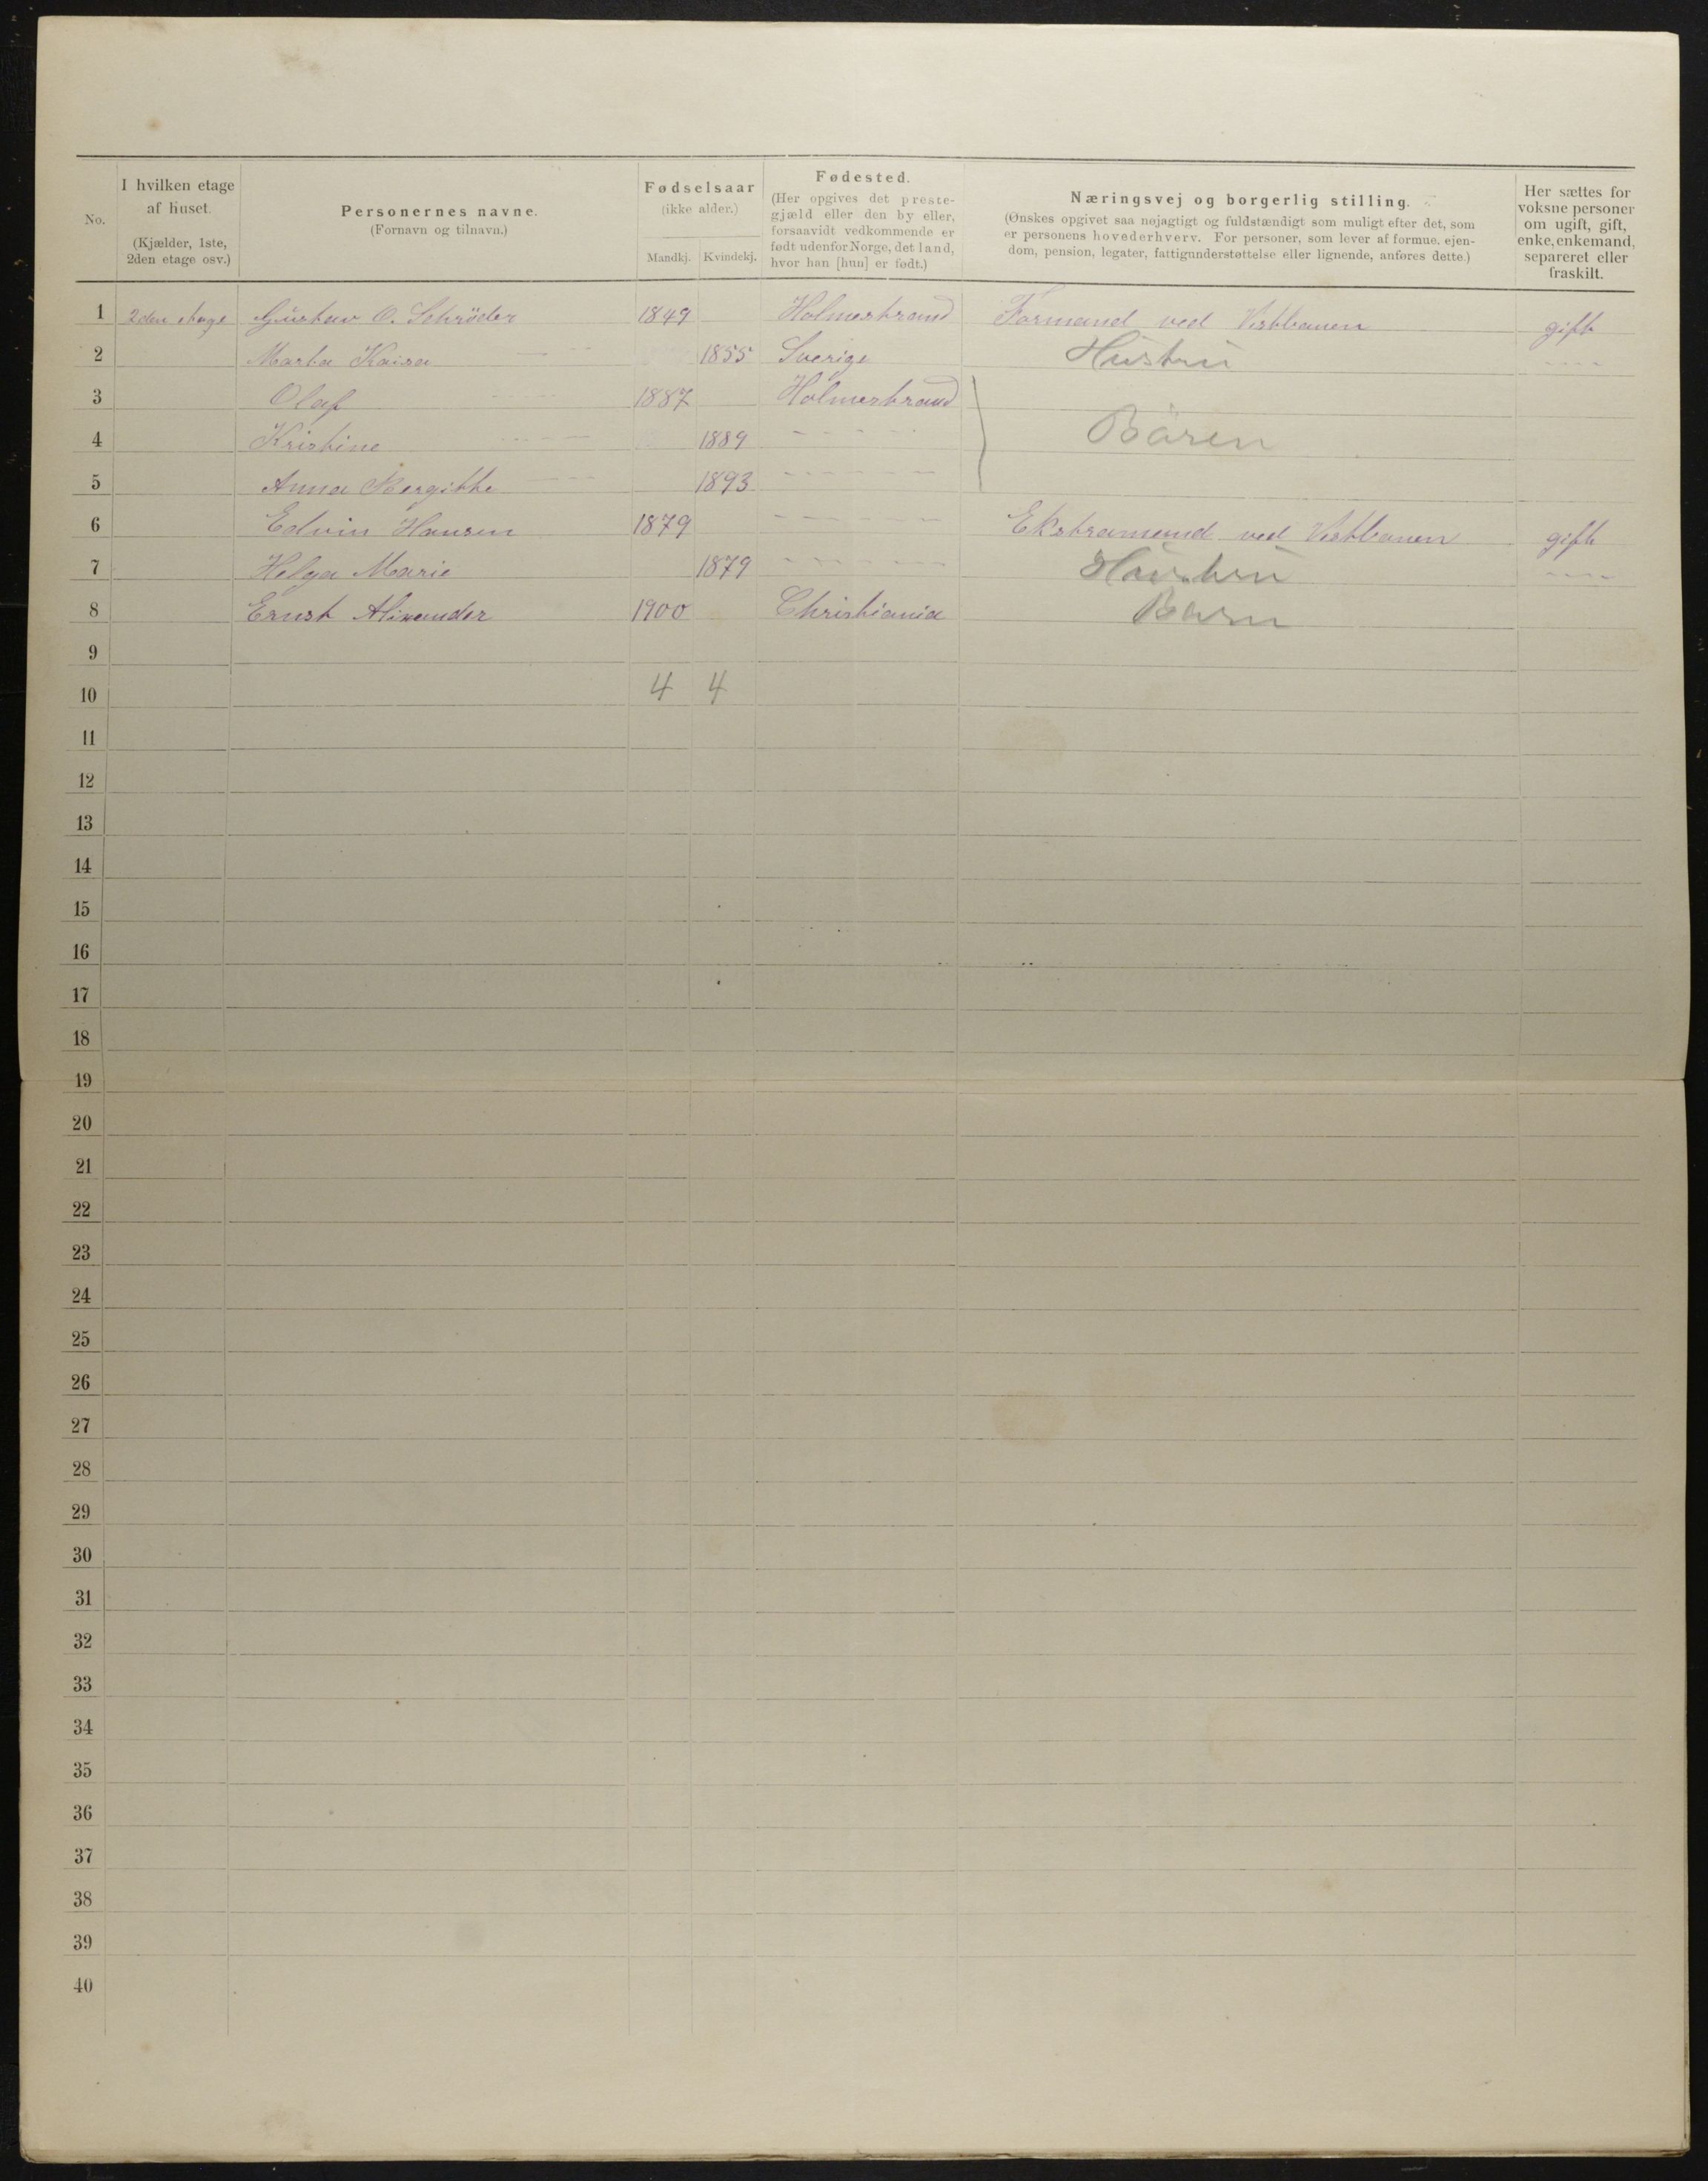 No.
I hvilken etage af huset.
(Kjælder, 1ste, 2den etage osv.)
Personernes navne.
(Fornavn og tilnavn.)
Fødselsaar
(ikke alder.)
Mandkj. Kvindekj.
Fødested.
(Her opgives det preste-
gjæld eller den by eller,
forsaavidt vedkommende er
født udenfor Norge, det land,
hvor han [hun] er født.)
Næringsvej og borgerlig stilling.
(Ønskes opgivet saa nøjagtigt og fuldstændigt som muligt efter det, som
er personens hovederhverv. For personer, som lever af formue, ejen-
dom, pension, legater, fattigunderstøttelse eller lignende, anføres dette.)
Her sættes for
voksne personer
om ugift, gift,
enke, enkemand,
separeret eller
fraskilt.
1 2den etage Gustav O. Schrøder 1849 Holmestrand Formand ved Vestbanen gift
2 Marta Kaisa - - 1855 Sverige Hustru - - - -
3 Olaf - - - 1887 Holmestrand
4 Kristine - - - - 1889 - - - - - Bören
5 Anna Bergitte - - - 1893 - - - - - -
6 Edvin Hansen 1879 - - - - - - Ekstramand ved Vestbanen gift
7 Helga Marie 1879 - - - - - - Hüstru - - - -
8 Ernst Alixander 1900 Christiania Barn
9
10 4 4
11
12
13
14
15
16
17
18
19
20
21
22
23
24
25
26
27
28
29
30
31
32
33
34
35
36
37
38
39
40